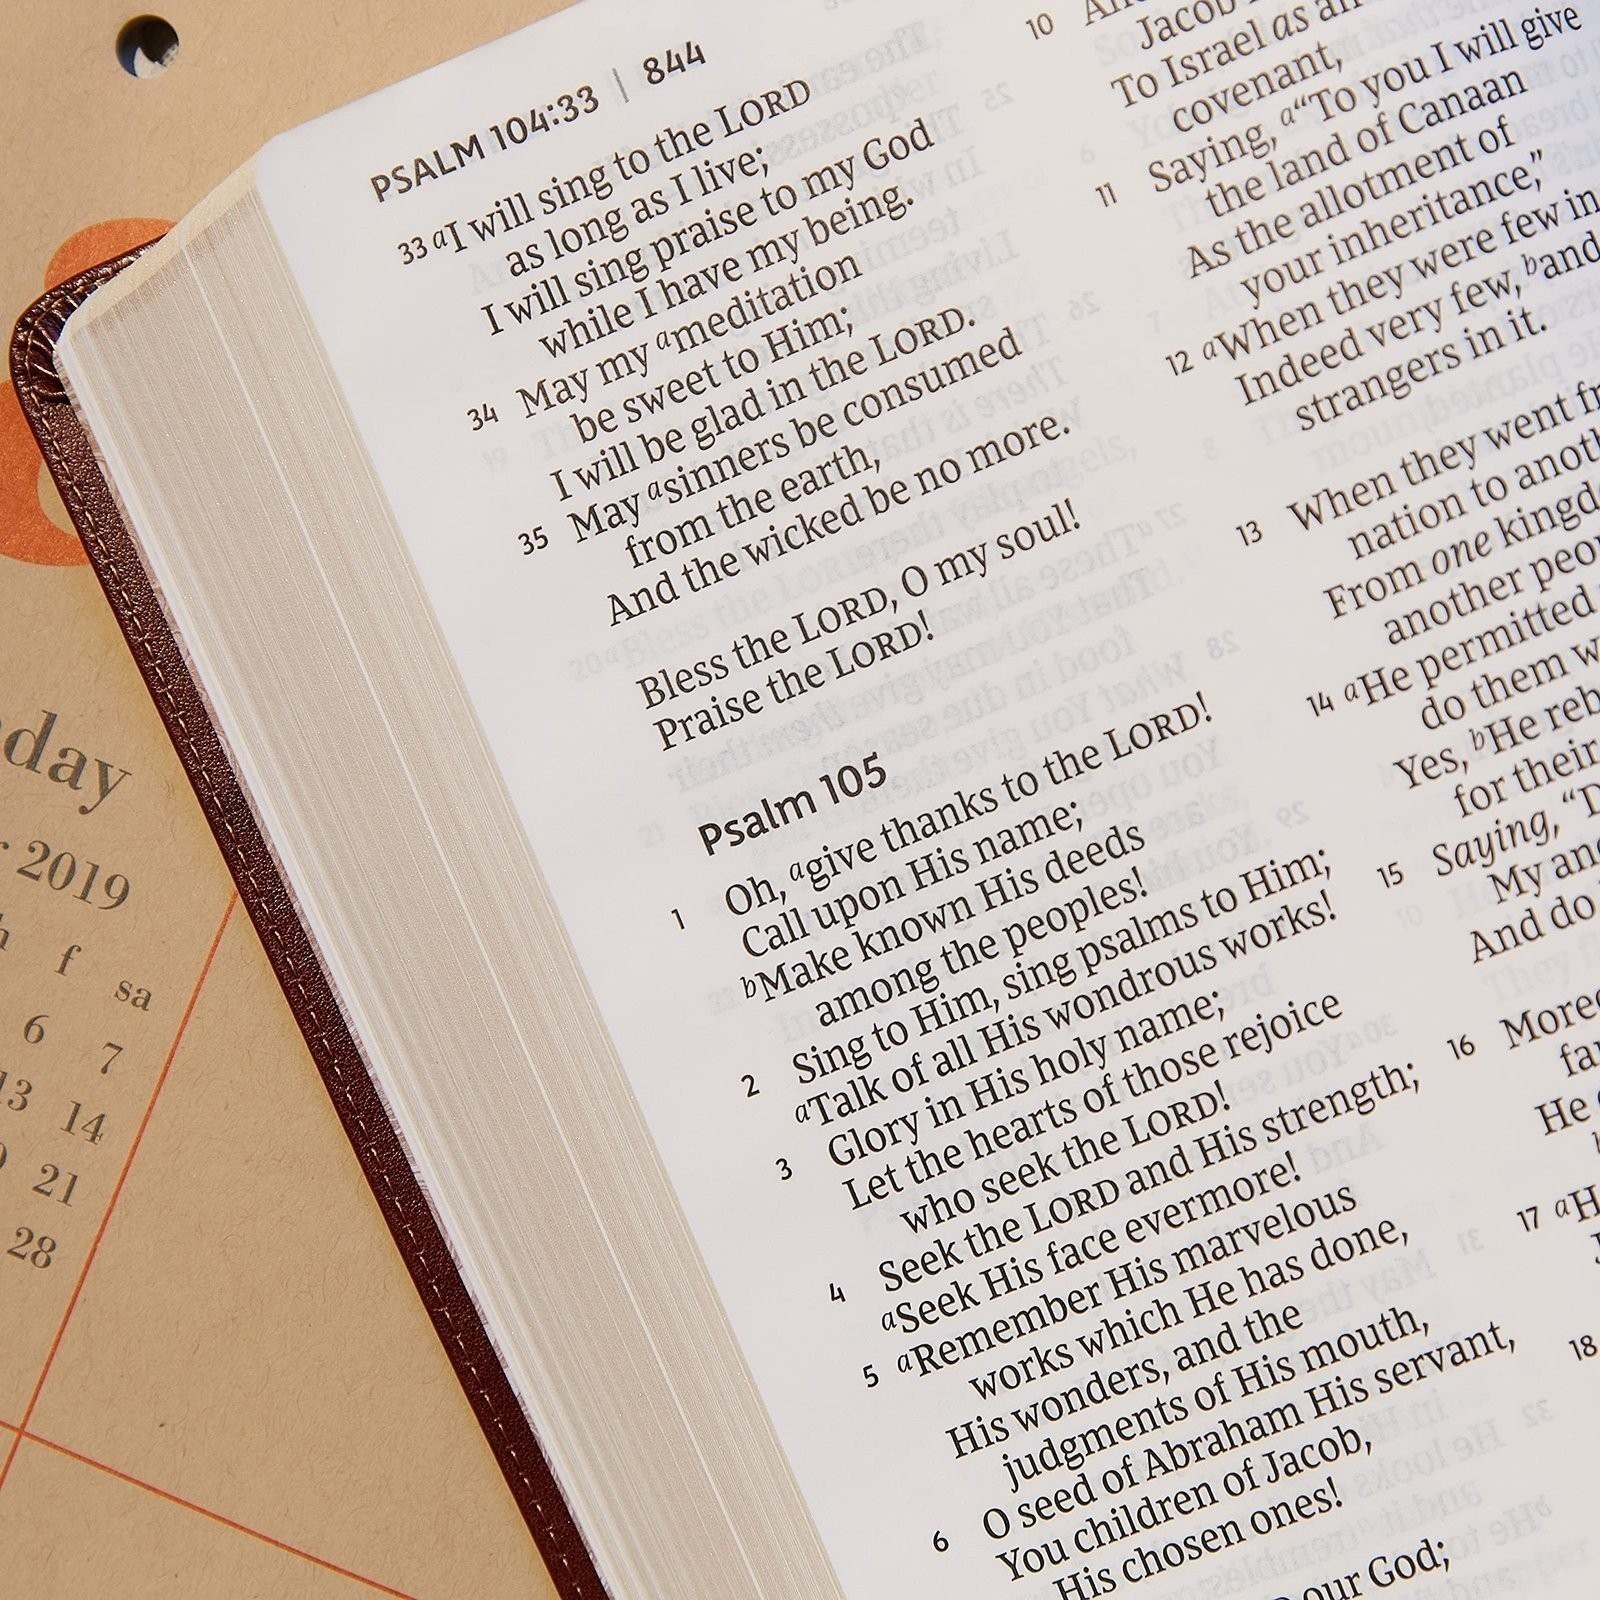 PSALM 104:33 | 844
33 aI will sing to the LORD
as long as I live;
I will sing praise to my God
while I have my being.
34 May my ameditation
be sweet to Him;
I will be glad in the LORD.
35 May asinners be consumed
from the earth,
And the wicked be no more.
Bless the LORD, O my soul!
Praise the LORD!
Psalm 105
1 Oh, agive thanks to the LORD!
Call upon His name;
bMake known His deeds
among the peoples!
2 Sing to Him, sing psalms to Him;
aTalk of all His wondrous works!
3 Glory in His holy name;
Let the hearts of those rejoice
who seek the LORD!
4 Seek the LORD and His strength;
aSeek His face evermore!
5 aRemember His marvelous
works which He has done,
His wonders, and the
judgments of His mouth,
6 O seed of Abraham His servant,
You children of Jacob,
His chosen ones!
our God;
10
Jacob
To Israel as an
covenant,
11 Saying, a“To you I will give
the land of Canaan
As the allotment of
your inheritance,”
12 aWhen they were few in
Indeed very few, band
strangers in it.
13 When they went
nation to
From one
another
14 aHe permitted
do them
Yes, bHe
for their
15 Saying,
My
And do
16
He
17
18
2019
f
sa
6 7
13 14
21
28